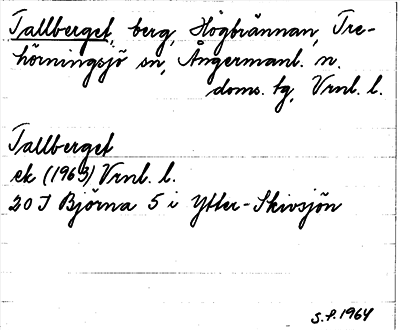 Tallberget, berg, Högbrännan, Tre-
hörningsjö sn, Ångermanl. n.
doms. tg, Vrnl. l.
Tallberget
ek (1963) Vrnl. l.
20 I Björna 5 i Ytter-Skivsjön
S.f. 1964